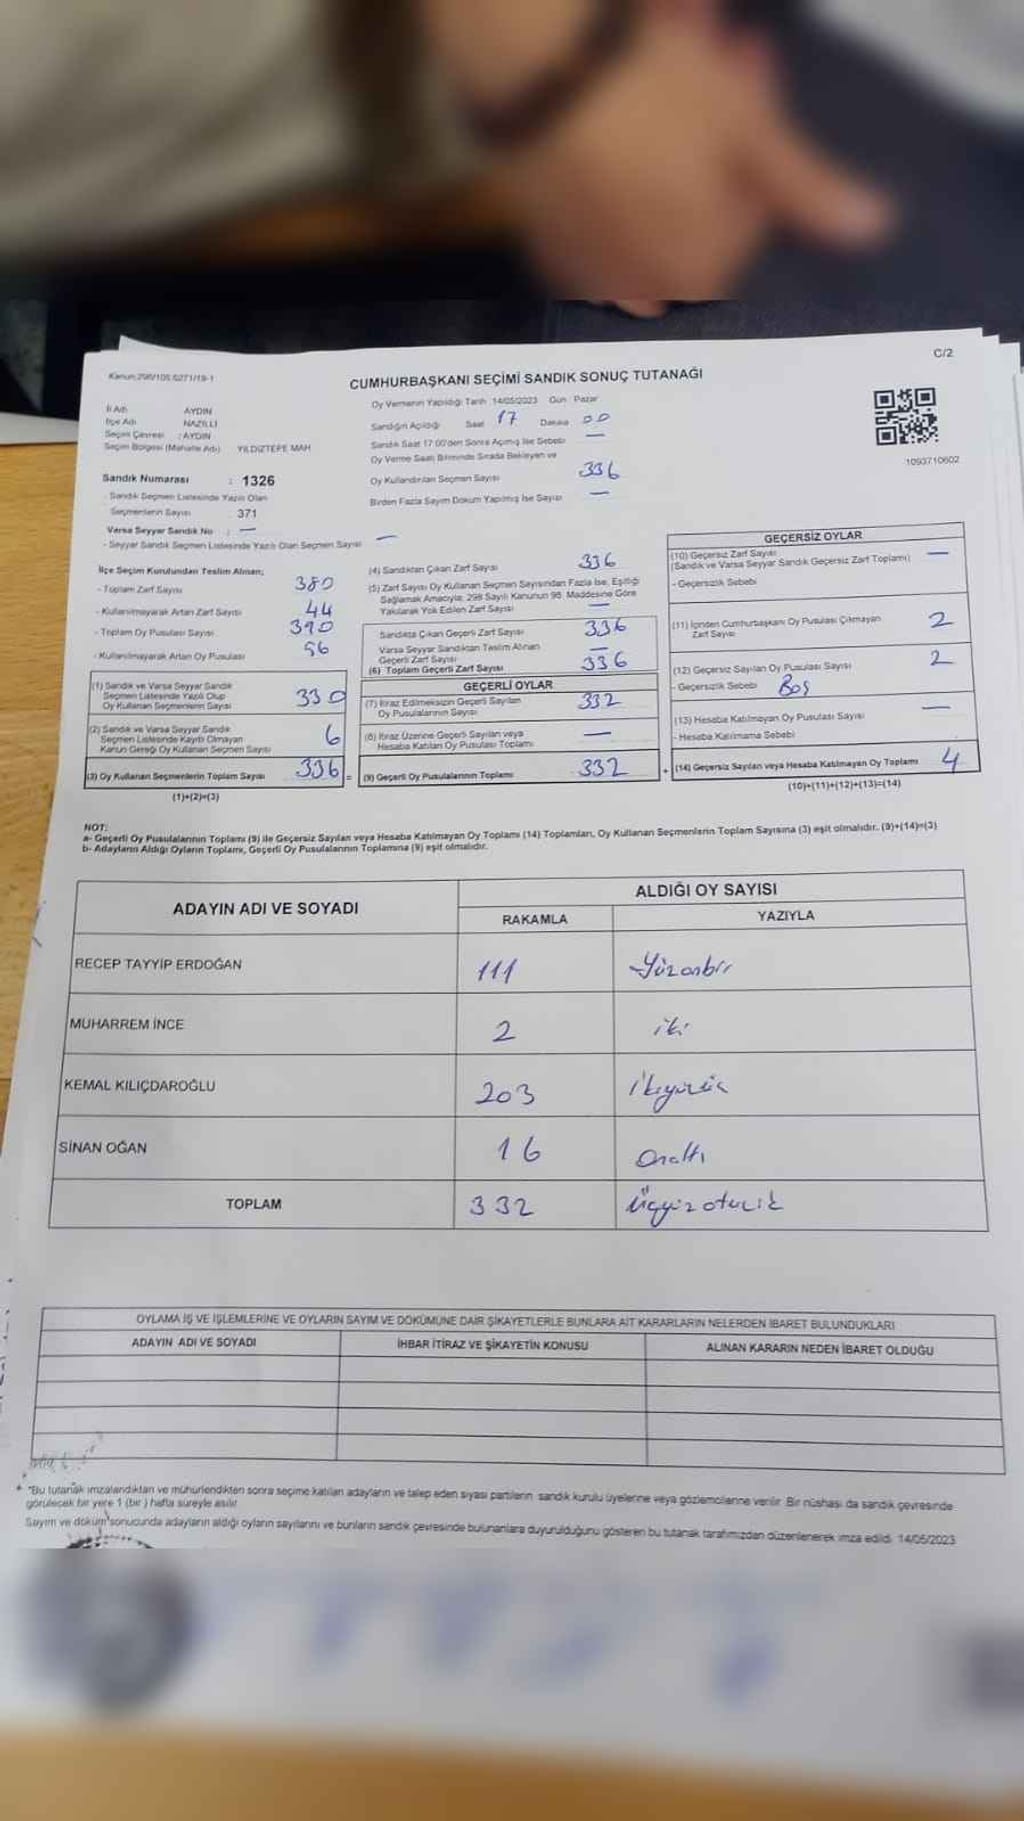 C/2
Kanun:298/105.6271/19-1
CUMHURBAŞKANI SEÇİMİ SANDIK SONUÇ TUTANAĞI
İl Adı AYDIN
İlçe Adı NAZİLLİ
Seçim Çevresi : AYDIN
Seçim Bölgesi (Mahalle Adı) YILDIZTEPE MAH
Oy Vermenin Yapıldığı Tarih 14/05/2023 Gün : Pazar
Sandığın Açıldığı Saat 17 Dakika 00
Sandık Saat 17:00'den Sonra Açılmış İse Sebebi —
Oy Verme Saati Bitiminde Sırada Bekleyen ve
Oy Kullandırılan Seçmen Sayısı 336
Birden Fazla Sayım Döküm Yapılmış İse Sayısı —
1093710602
Sandık Numarası : 1326
- Sandık Seçmen Listesinde Yazılı Olan
Seçmenlerin Sayısı 371
Varsa Seyyar Sandık No : —
- Seyyar Sandık Seçmen Listesinde Yazılı Olan Seçmen Sayısı —
İlçe Seçim Kurulundan Teslim Alınan;
- Toplam Zarf Sayısı 380
- Kullanılmayarak Artan Zarf Sayısı 44
- Toplam Oy Pusulası Sayısı 390
- Kullanılmayarak Artan Oy Pusulası 56
(1) Sandık ve Varsa Seyyar Sandık
Seçmen Listesinde Yazılı Olup
Oy Kullanan Seçmenlerin Sayısı 330
(2) Sandık ve Varsa Seyyar Sandık
Seçmen Listesinde Kayıtlı Olmayan
Kanun Gereği Oy Kullanan Seçmen Sayısı 6
(3) Oy Kullanan Seçmenlerin Toplam Sayısı 336 =
(1)+(2)=(3)
(4) Sandıktan Çıkan Zarf Sayısı 336
(5) Zarf Sayısı Oy Kullanan Seçmen Sayısından Fazla İse, Eşitliği
Sağlamak Amacıyla; 298 Sayılı Kanunun 98. Maddesine Göre
Yakılarak Yok Edilen Zarf Sayısı —
Sandıkta Çıkan Geçerli Zarf Sayısı 336
Varsa Seyyar Sandıktan Teslim Alınan
Geçerli Zarf Sayısı —
(6) Toplam Geçerli Zarf Sayısı 336
GEÇERLİ OYLAR
(7) İtiraz Edilmeksizin Geçerli Sayılan
Oy Pusulalarının Sayısı 332
(8) İtiraz Üzerine Geçerli Sayılan veya
Hesaba Katılan Oy Pusulası Toplamı —
(9) Geçerli Oy Pusulalarının Toplamı 332 +
GEÇERSİZ OYLAR
(10) Geçersiz Zarf Sayısı
(Sandık ve Varsa Seyyar Sandık Geçersiz Zarf Toplamı) —
- Geçersizlik Sebebi
(11) İçinden Cumhurbaşkanı Oy Pusulası Çıkmayan
Zarf Sayısı 2
(12) Geçersiz Sayılan Oy Pusulası Sayısı 2
- Geçersizlik Sebebi Boş
(13) Hesaba Katılmayan Oy Pusulası Sayısı —
- Hesaba Katılmama Sebebi
(14) Geçersiz Sayılan veya Hesaba Katılmayan Oy Toplamı 4
(10)+(11)+(12)+(13)=(14)
NOT:
a- Geçerli Oy Pusulalarının Toplamı (9) ile Geçersiz Sayılan veya Hesaba Katılmayan Oy Toplamı (14) Toplamları, Oy Kullanan Seçmenlerin Toplam Sayısına (3) eşit olmalıdır. (9)+(14)=(3)
b- Adayların Aldığı Oyların Toplamı, Geçerli Oy Pusulalarının Toplamına (9) eşit olmalıdır.
ADAYIN ADI VE SOYADI ALDIĞI OY SAYISI
RAKAMLA YAZIYLA
RECEP TAYYİP ERDOĞAN 111 Yüzonbir
MUHARREM İNCE 2 iki
KEMAL KILIÇDAROĞLU 203 ikiyüzüç
SİNAN OĞAN 16 Onaltı
TOPLAM 332
OYLAMA İŞ VE İŞLEMLERİNE VE OYLARIN SAYIM VE DÖKÜMÜNE DAİR ŞİKAYETLERLE BUNLARA AİT KARARLARIN NELERDEN İBARET BULUNDUKLARI
ADAYIN ADI VE SOYADI İHBAR İTİRAZ VE ŞİKAYETİN KONUSU ALINAN KARARIN NEDEN İBARET OLDUĞU
* "Bu tutanak imzalandıktan ve mühürlendikten sonra seçime katılan adayların ve talep eden siyasi partilerin sandık kurulu üyelerine veya gözlemcilerine verilir. Bir nüshası da sandık çevresinde
görülecek bir yere 1 (bir ) hafta süreyle asılır
Sayım ve döküm sonucunda adayların aldığı oyların sayılarını ve bunların sandık çevresinde bulunanlara duyurulduğunu gösteren bu tutanak tarafımızdan düzenlenerek imza edildi. 14/05/2023